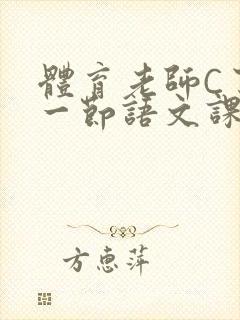 體育老師C了
一節語文課
方惠萍